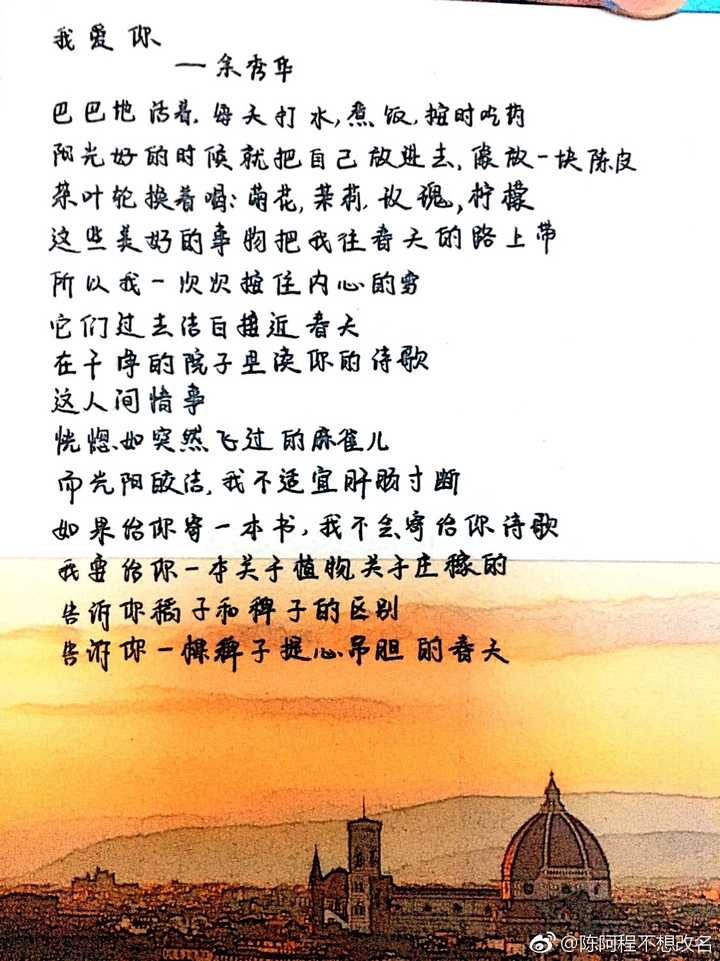 我爱你
—余秀华
巴巴地活着,每天打水,煮饭,按时吃药
阳光好的时候就把自己放进去,像放一块陈皮
茶叶轮换着喝:菊花,茉莉,玫瑰,柠檬
这些美好的事物把我往春天的路上带
所以我一次次按住内心的雪
它们过去洁白接近春天
在干净的院子里读你的诗歌
这人间情事
恍惚如突然飞过的麻雀儿
而光阳皎洁,我不适宜肝肠寸断
如果给你寄一本书,我不会寄给你诗歌
我要给你一本关于植物关于庄稼的
告诉你稻子和稗子的区别
告诉你一棵稗子提心吊胆的春天
@陈阿程不想改名